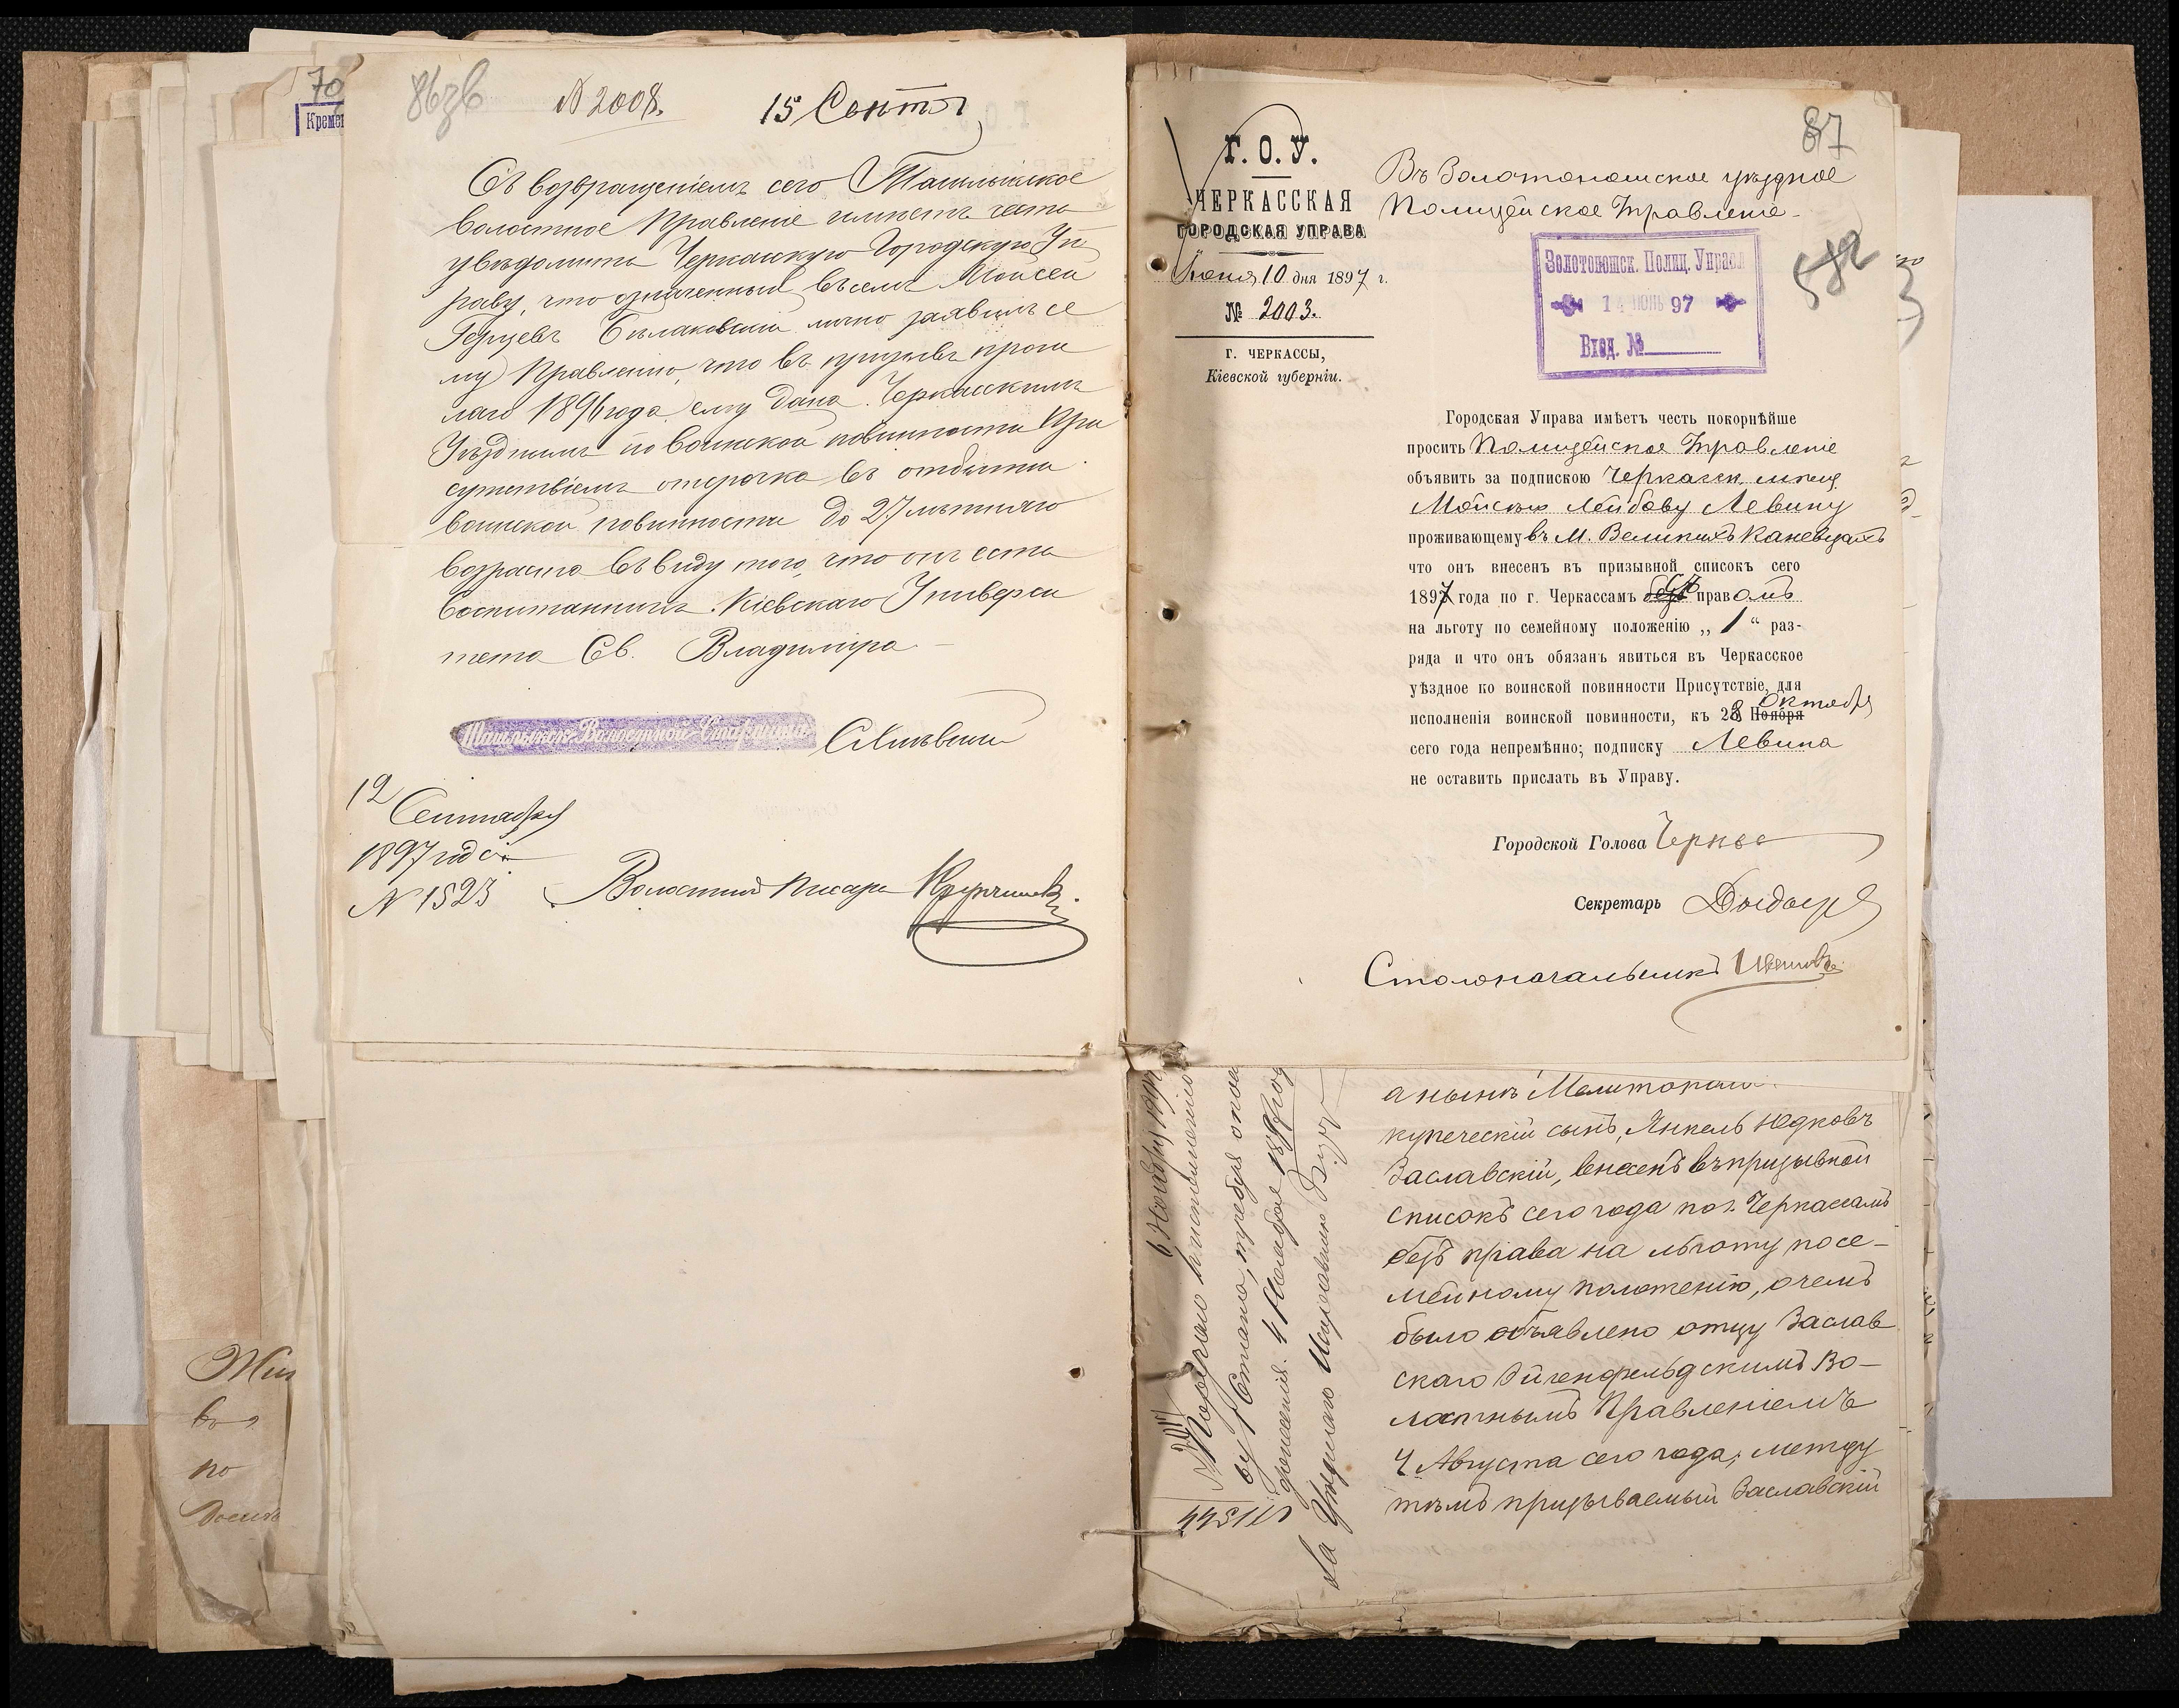 70
Кремен
86зв
№ 2008.
15 Сентя
Съ возвращеніемъ сего Ташлыкское
волостное Правленіе имѣетъ честь
увѣдомить Черкасскую Городскую Уп
раву, что означенный въ семъ Мойсей
Герцевъ Бѣлаковскій лично заявилъ се
му Правленію, что въ призывъ прош
лаго 1896 года ему дана Черкасскимъ
Уѣзднымъ по воинской повинности При
сутствіемъ отсрочка въ отбытіи
воинской повинности до 27 лѣтняго
возраста въ виду того, что онъ есть
воспитанникъ Кіевскаго Универси
тета Св. Владиміра
Ташлыкск. Волостной Старшина
12 Сентября
1897 года
№ 1523
Волостной Писарь
87
Г. О. У.
ЧЕРКАССКАЯ
ГОРОДСКАЯ УПРАВА
Іюня 10 дня 1897 г.
№ 2003.
г. ЧЕРКАССЫ,
Кіевской губерніи.
Въ Золотоношское уѣздное
Полицейское Правленіе
Золотоношск. Полиц. Управл
14 ІЮНЬ 97
Вход. №
582
Городская Управа имѣетъ честь покорнѣйше
просить Полицейское Правленіе
объявить за подпискою Черкасск. мѣщ.
Мойсѣю Лейбову Левину
проживающему въ М. Великихъ Каневцахъ
что онъ внесенъ въ призывной списокъ сего
1897 года по г. Черкассамъ безъ съ правомъ
на льготу по семейному положенію „ 1 “ раз-
ряда и что онъ обязанъ явиться въ Черкасское
уѣздное по воинской повинности Присутствіе, для
исполненія воинской повинности, къ 28 Ноября Октября
сего года непремѣнно; подписку Левина
не оставить прислать въ Управу.
Городской Голова
Секретарь
Столоначальникъ
а нынѣ Мелитопол
купеческій сынъ, Янкель Юдковъ
Заславскій, внесенъ въ призывной
списокъ сего года по г. Черкассамъ
безъ права на льготу по се-
мейному положенію, о чемъ
было объявлено отцу Заслав
скаго Эйгенфельдскимъ Во-
лостнымъ Правленіемъ
4 Августа сего года, между
тѣмъ призываемый Заславскій
6 Ноября 1897
4 Ноября 1897 год
во
по